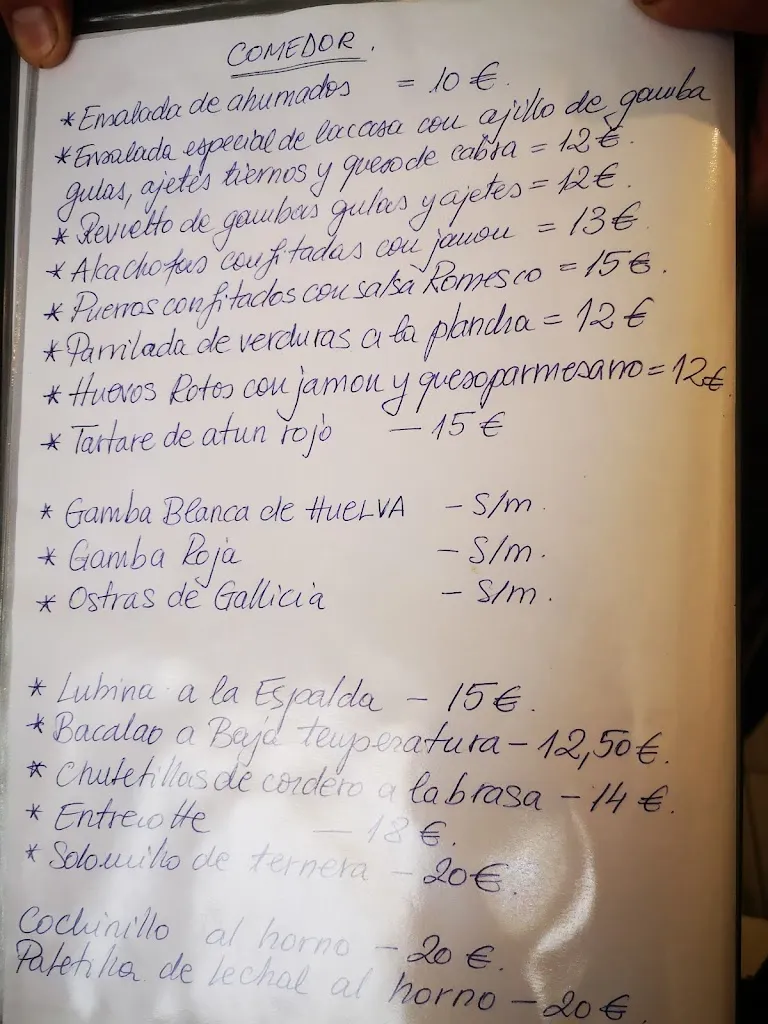 COMEDOR.
* Ensalada de ahumados = 10 €.
* Ensalada especial de la casa con ajillo de gamba
gulas, ajetes tiernos y queso de cabra = 12 €.
* Revuelto de gambas gulas y ajetes = 12 €.
* Alcachofas confitadas con jamon = 13 €
* Puerros confitados con salsa Romesco = 15 €.
* Parrilada de verduras a la plancha = 12 €
* Huevos Rotos con jamon y queso parmesano = 12 €.
* Tartare de atun rojo - 15 €
* Gamba Blanca de HUELVA - S/m.
* Gamba Roja - S/m.
* Ostras de Gallicia - S/m.
* Lubina a la Espalda - 15 €.
* Bacalao a Baja temperatura - 12,50 €.
* Chuletillas de cordero a la brasa - 14 €.
* Entrecotte - 18 €.
* Solomillo de ternera - 20 €.
Cochinillo al horno - 20 €.
Paletilla de lechal al horno - 20 €.